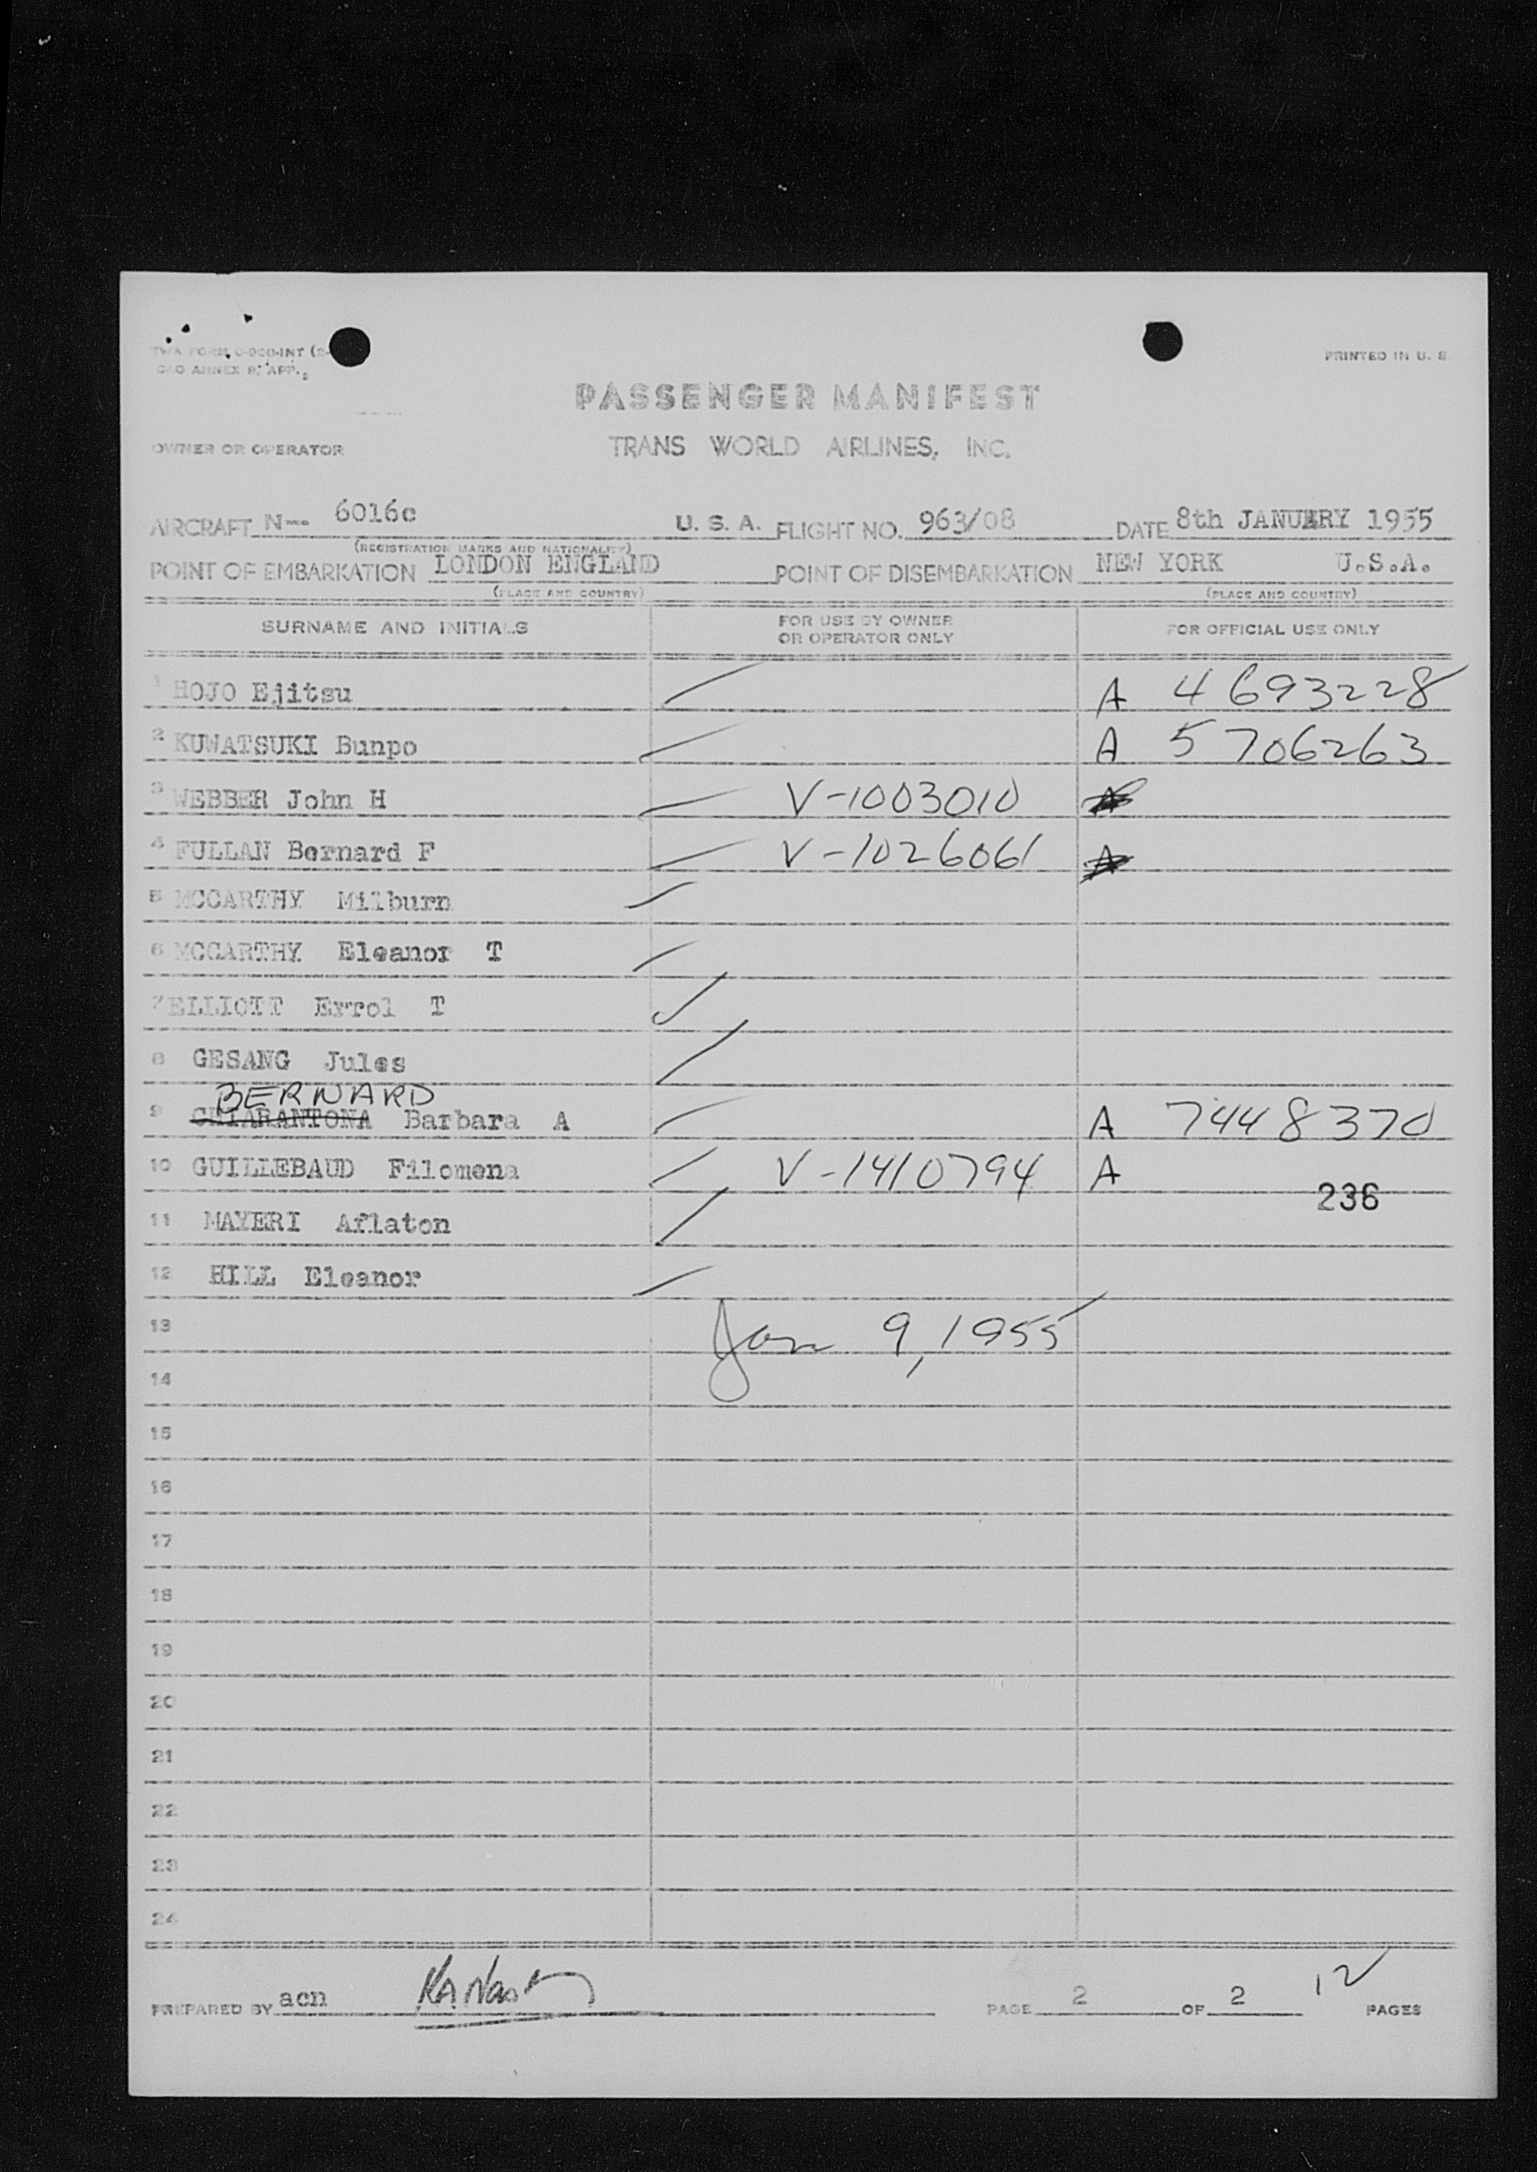 TWA FORM
ICAO ANNEX 9, APP.
PRINTED IN U. S.
PASSENGER MANIFEST
OWNER OR OPERATOR TRANS WORLD AIRLINES, INC.
AIRCRAFT N-- 6016c U. S. A. FLIGHT NO. 963/08 DATE 8th JANUARY 1955
(REGISTRATION MARKS AND NATIONALITY)
POINT OF EMBARKATION LONDON ENGLAND POINT OF DISEMBARKATION NEW YORK U.S.A.
(PLACE AND COUNTRY) (PLACE AND COUNTRY)
SURNAME AND INITIALS FOR USE BY OWNER OR OPERATOR ONLY FOR OFFICIAL USE ONLY
1 HOJO Ejitsu A 4693228
2 KUWATSUKI Bunpo A 5706263
3 WEBBER John H V-1003010 A
4 FULLAN Bernard F V-1026061 A
5 MCCARTHY Milburn
6 MCCARTHY Eleanor T
7 ELLIOTT Errol T
8 GESANG Jules
BERNARD
9 CHIARANTONA Barbara A A 7448370
10 GUILLEBAUD Filomena V-1410794 A
236
11 MAYERI Aflaton
12 HILL Eleanor
13 Jan 9, 1955
14
15
16
17
18
19
20
21
22
23
24
PREPARED BY acn PAGE 2 OF 2 12 PAGES